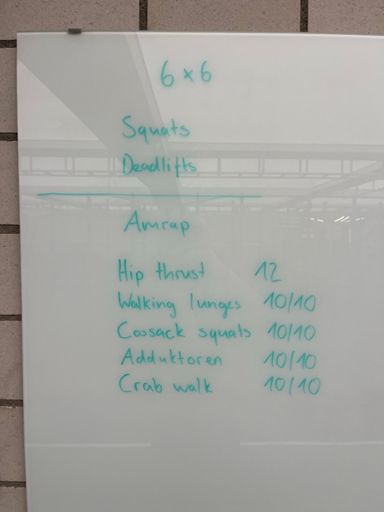 6 x 6
Squats
Deadlifts
Amrap
Hip thrust 12
Walking lunges 10/10
Cossack squats 10/10
Adduktoren 10/10
Crab walk 10/10